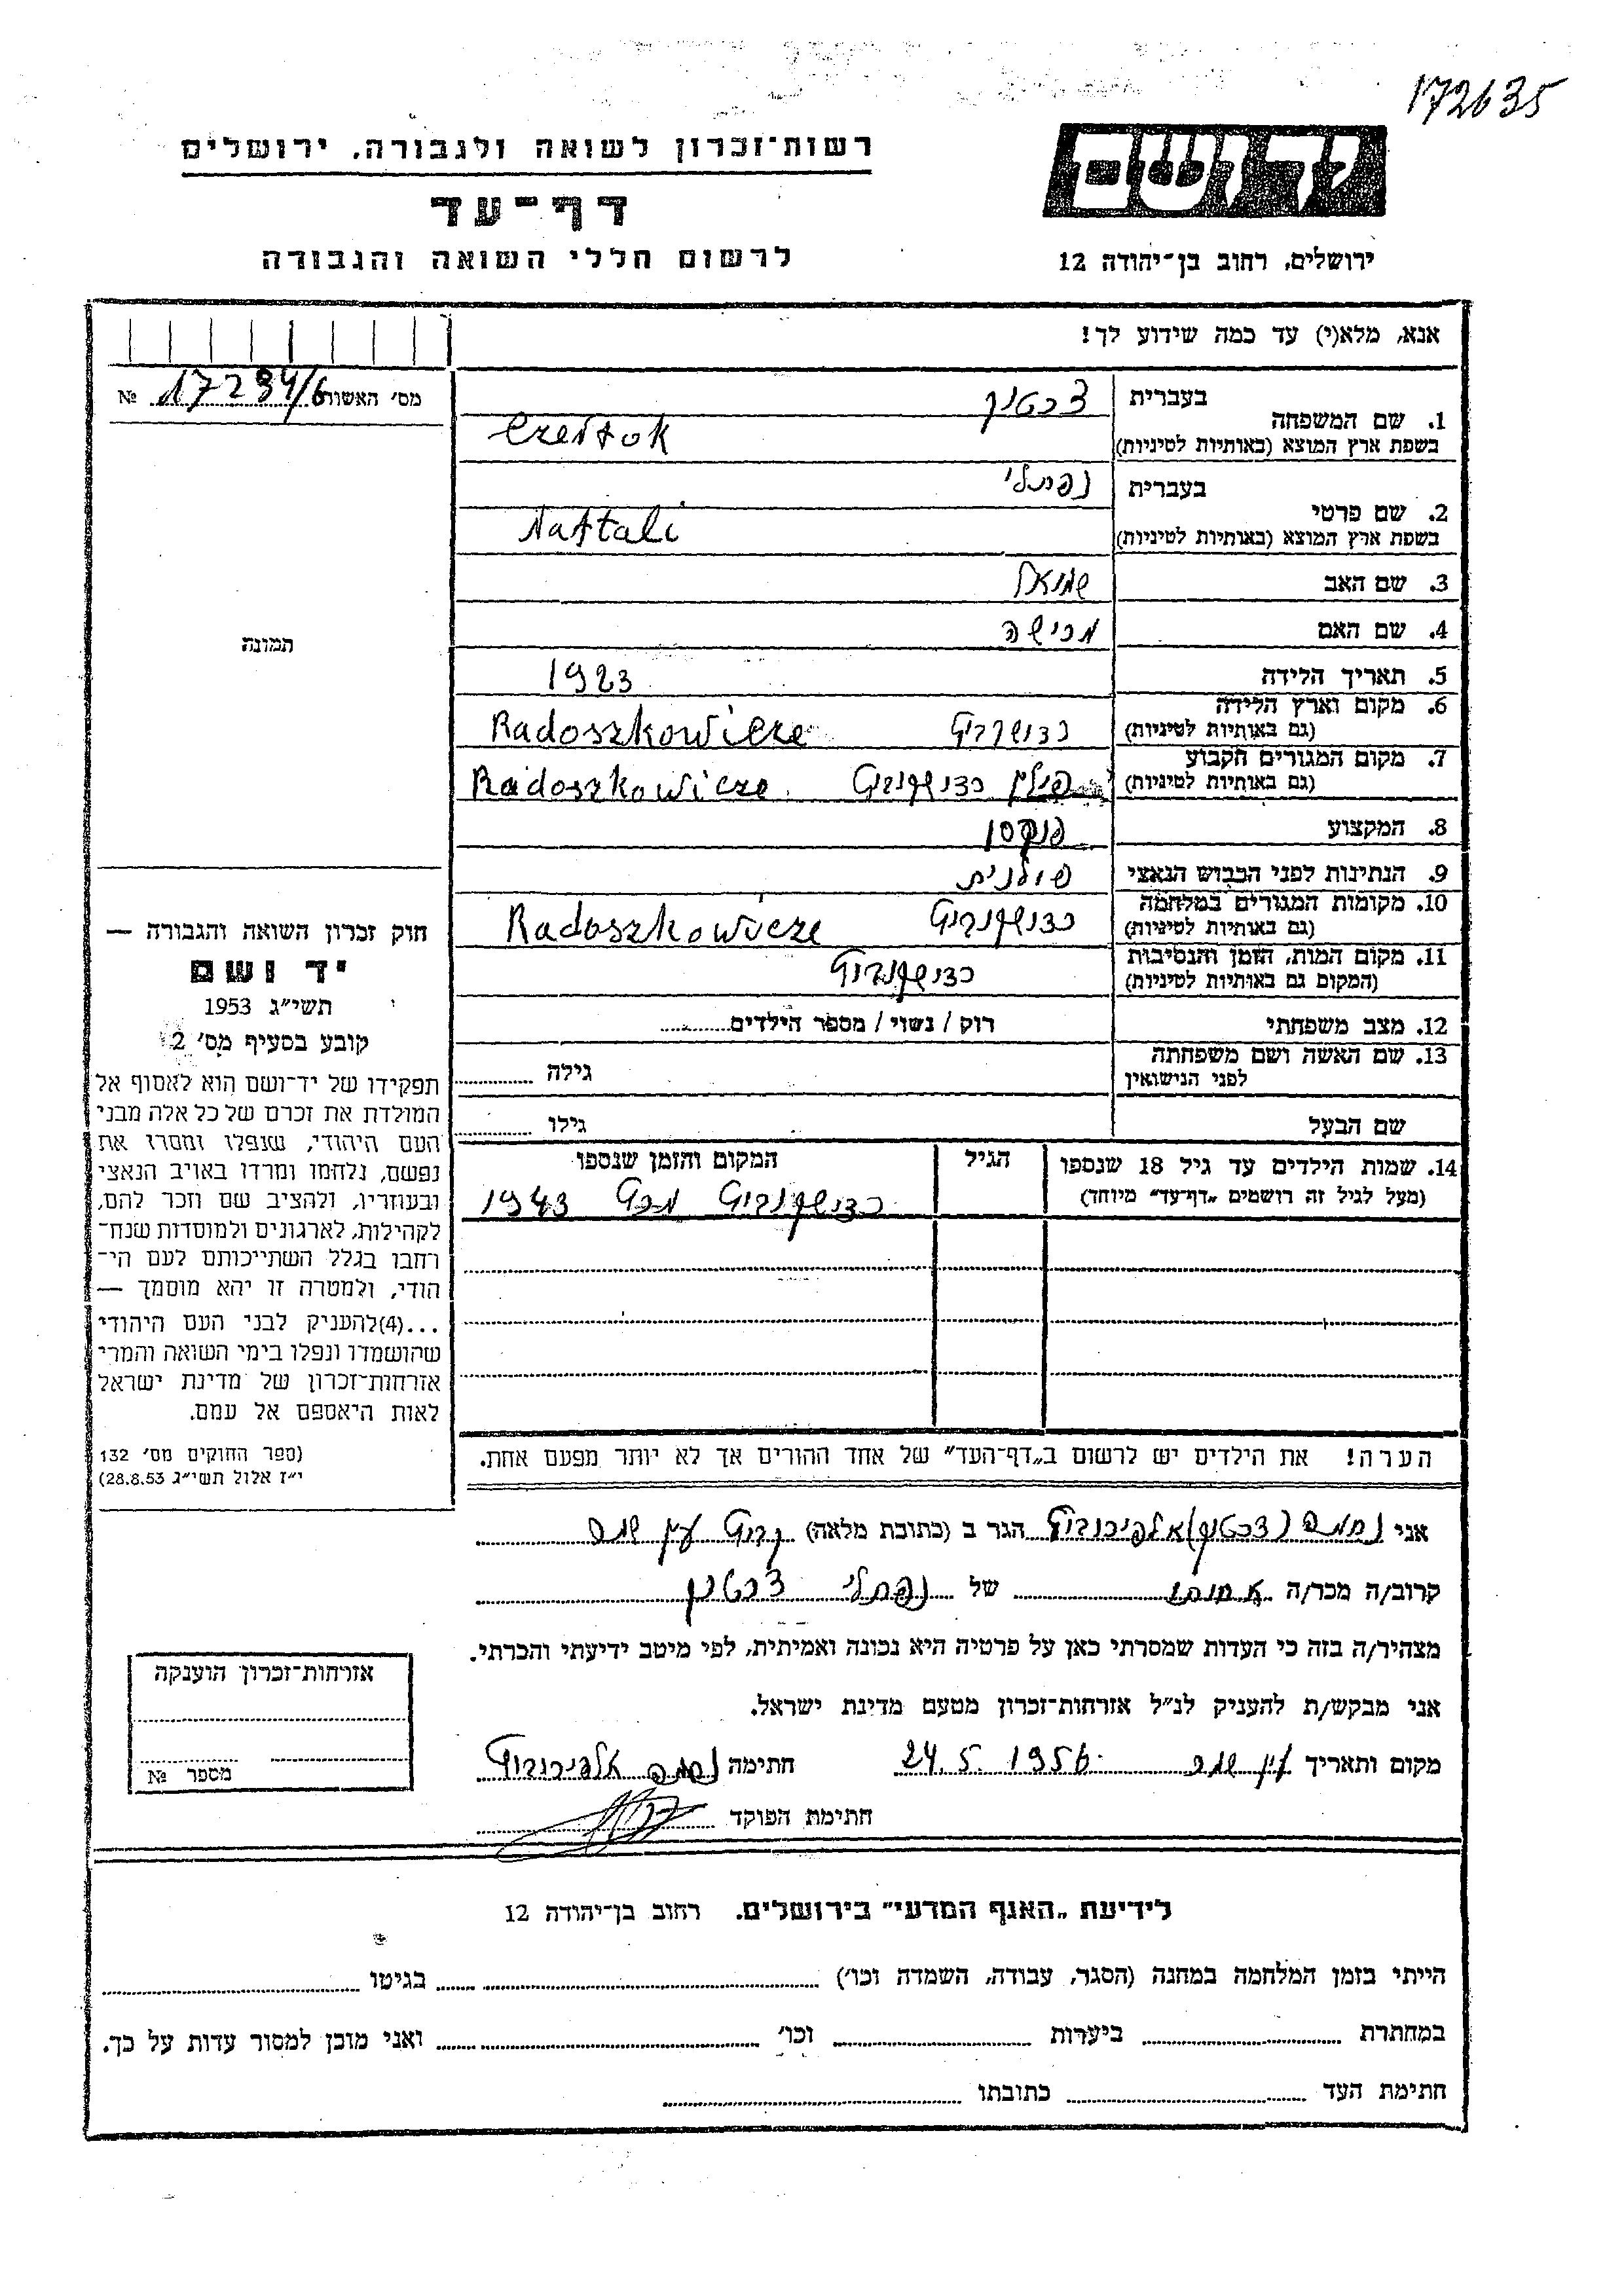 172635
רשות־זכרון לשואה ולגבורה, ירושלים
יד ושם
דף־עד
לרשום חללי השואה והגבורה
ירושלים, רחוב בן־יהודה 12
אנא, מלא(י) עד כמה שידוע לך!
מס׳ האשור 17234/6 №
1. שם המשפחה
בעברית צרטוק
בשפת ארץ המוצא (באותיות לטיניות) Czertok
2. שם פרטי
בעברית נפתלי
בשפת ארץ המוצא (באותיות לטיניות) Naftali
3. שם האב שמואל
4. שם האם
5. תאריך הלידה 1923
6. מקום וארץ הלידה
(גם באותיות לטיניות) Radoszkowicze
7. מקום המגורים הקבוע
(גם באותיות לטיניות) פולין Radoszkowicze
8. המקצוע
9. הנתינות לפני הכבוש הנאצי פולנית
10. מקומות המגורים במלחמה
(גם באותיות לטיניות) Radoszkowicze
11. מקום המות, הזמן והנסיבות
(המקום גם באותיות לטיניות)
12. מצב משפחתי רווק / נשוי / מספר הילדים
13. שם האשה ושם משפחתה
לפני הנישואין
גילה
שם הבעל גילו
14. שמות הילדים עד גיל 18 שנספו הגיל המקום והזמן שנספו
(מעל לגיל זה רושמים „דף־עד״ מיוחד)
1943
הערה! את הילדים יש לרשום ב„דף־העד״ של אחד ההורים אך לא יותר מפעם אחת.
תמונה
חוק זכרון השואה והגבורה —
יד ושם
תשי״ג 1953
קובע בסעיף מס׳ 2
תפקידו של יד־ושם הוא לאסוף אל
המולדת את זכרם של כל אלה מבני
העם היהודי, שנפלו ומסרו את
נפשם, נלחמו ומרדו באויב הנאצי
ובעוזריו, ולהציב שם וזכר להם,
לקהילות, לארגונים ולמוסדות שנח־
רבו בגלל השתייכותם לעם הי־
הודי, ולמטרה זו יהא מוסמך —
...(4)להעניק לבני העם היהודי
שהושמדו ונפלו בימי השואה והמרי
אזרחות־זכרון של מדינת ישראל
לאות היאספם אל עמם.
(ספר החוקים מס׳ 132
י״ז אלול תשי״ג 28.8.53)
אני נחמה (צרטוק) הגר ב (כתובת מלאה)
קרוב/ה מכר/ה אחותו של נפתלי צרטוק
מצהיר/ה בזה כי העדות שמסרתי כאן על פרטיה היא נכונה ואמיתית, לפי מיטב ידיעתי והכרתי.
אני מבקש/ת להעניק לנ״ל אזרחות־זכרון מטעם מדינת ישראל.
מקום ותאריך 24.5.1956 חתימה נחמה
חתימת הפוקד
אזרחות־זכרון הוענקה
מספר №
לידיעת „האגף המדעי״ בירושלים. רחוב בן־יהודה 12
הייתי בזמן המלחמה במחנה (הסגר, עבודה, השמדה וכו׳) בגיטו
במחתרת ביערות וכו׳ ואני מוכן למסור עדות על כך.
חתימת העד כתובתו